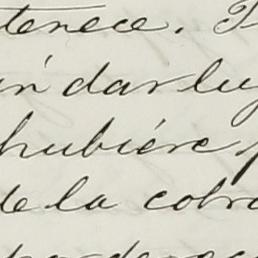 tenece.
in dar lu
hubiére
de la cobr